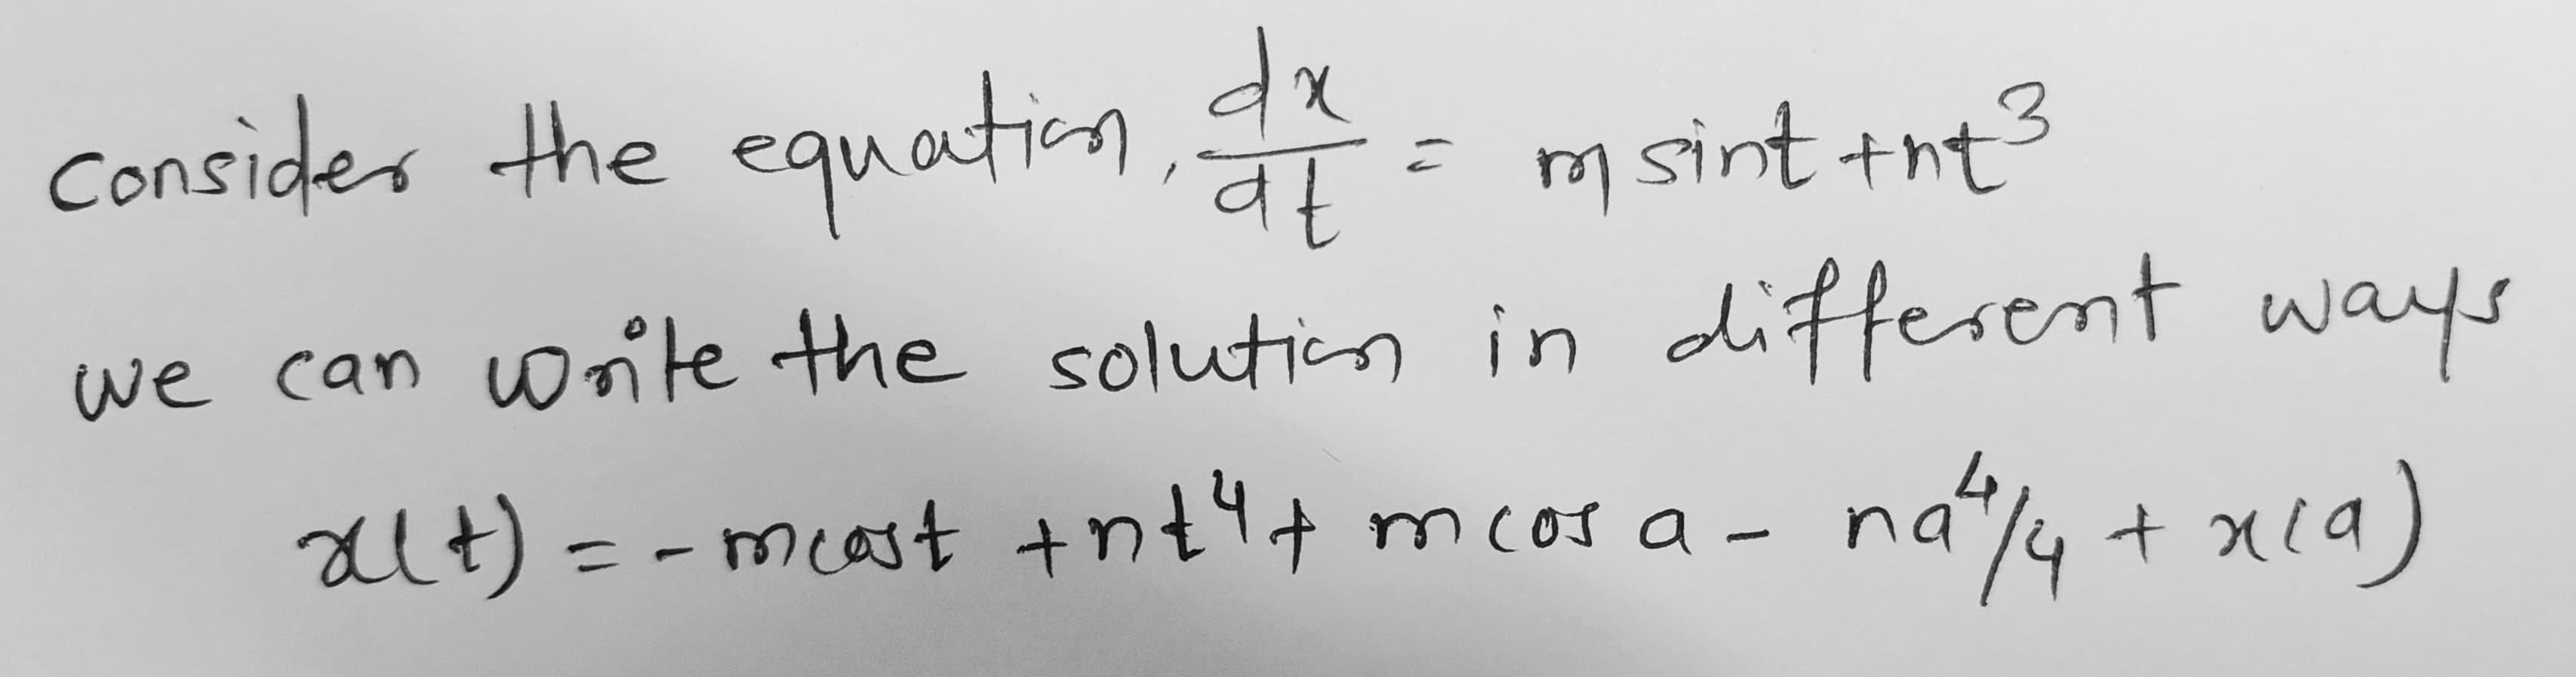 consider the equation, dx/dt = m sint + nt³
we can write the solution in different ways
x(t) = - mcost + nt⁴ + m cos a - na⁴/4 + x(a)